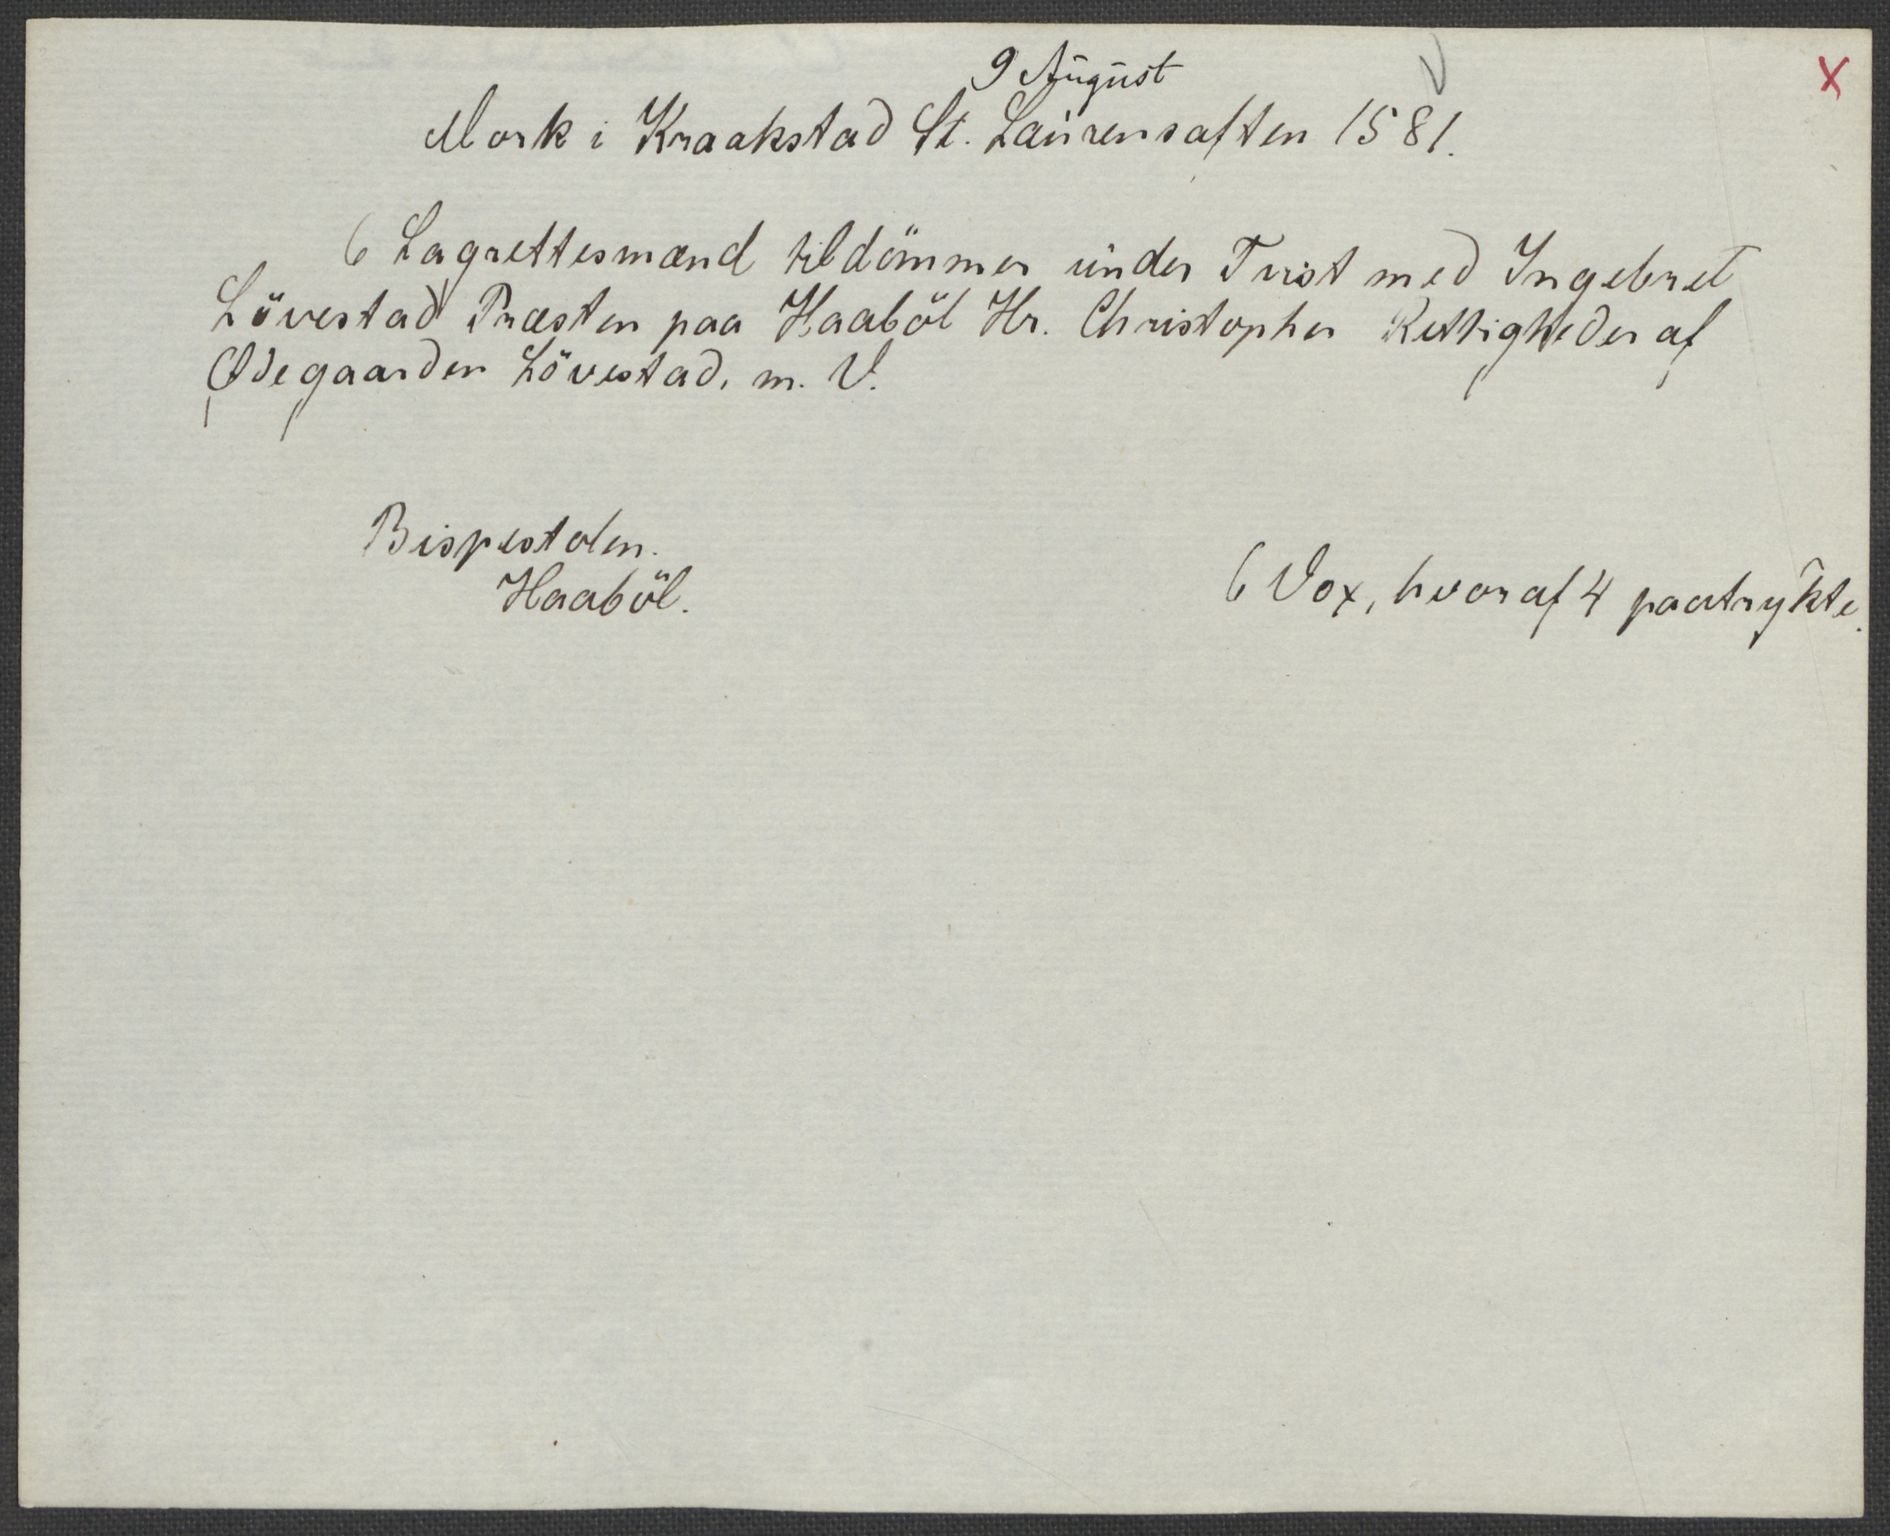 9 August
Mork i Kraakstad St. Laurensaften 1581.
6 Lagrettesmænd tildömmer under Tvist med Ingebret
Lövestad Præsten paa Haaböl Hr. Christopher Rettigheder af
Ødegaarden Lövestad, m. V.
Bispestolen.
Haaböl.
6 Vox, hvoraf 4 paatrykte.